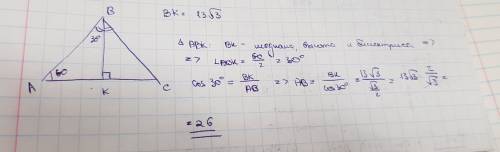 B
BK = 13√3
30°
Δ ABK: BK - медиана, высота и биссектриса =>
=> ∠ABK = 60/2 = 30°
60
A
K
C
cos 30° = BK/AB => AB = BK/cos30° = 13√3/(√3/2) = 13√3 · 2/√3 =
= 26